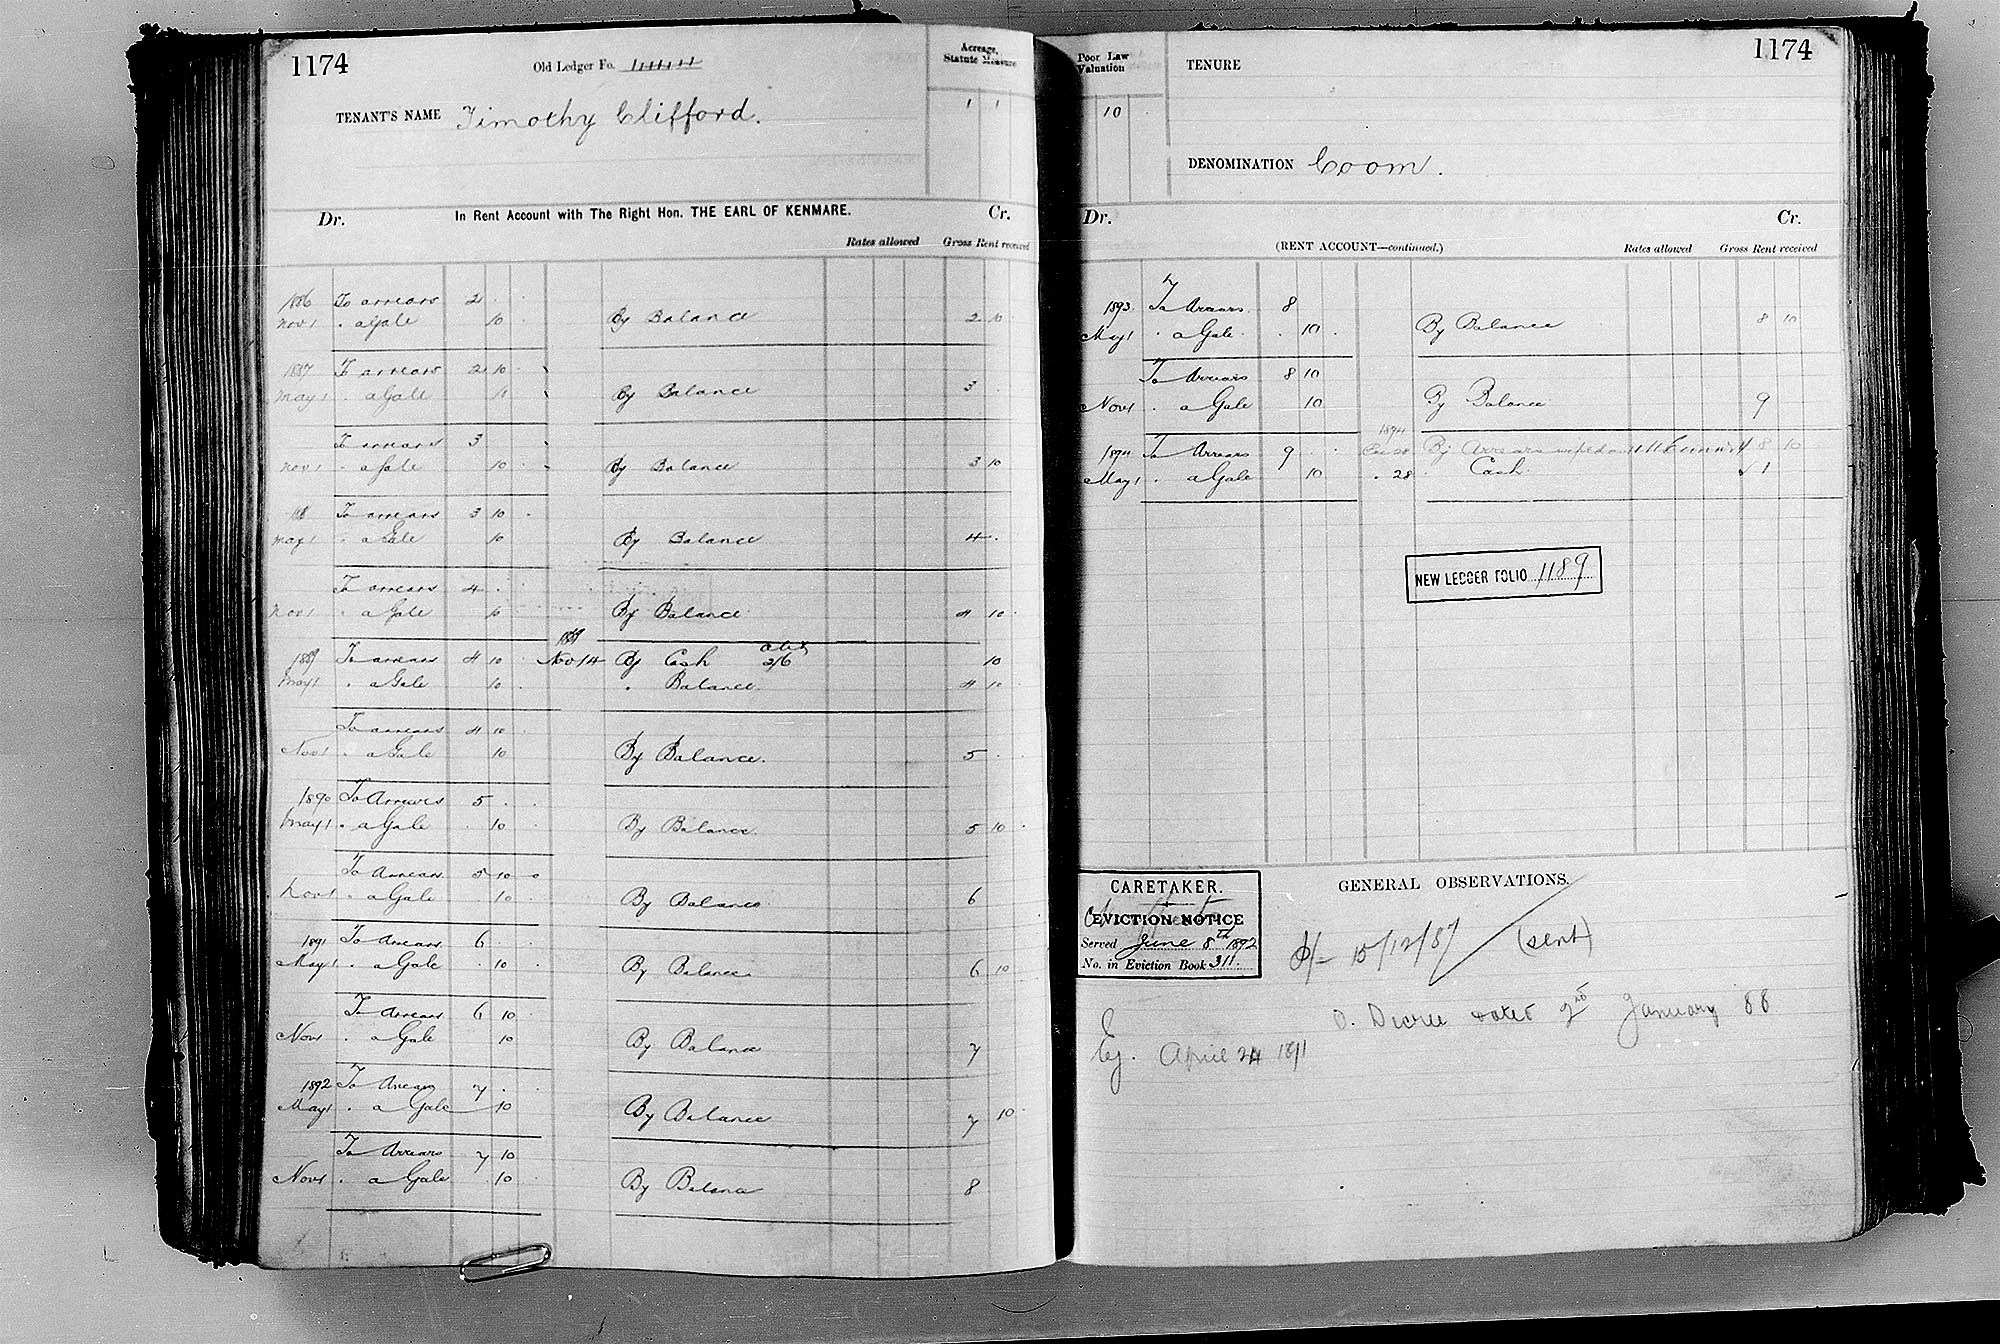 1174
Old Ledger Fo.
Acreage, Statute Measure
TENANT'S NAME Timothy Clifford.
1 1
Dr. In Rent Account with The Right Hon. THE EARL OF KENMARE. Cr.
Rates allowed Gross Rent received
1886 To arrears 2 . .
Nov 1 . a Gale 10 By Balance 2 10
1887 To arrears 2 10 .
May 1 . a Gale By Balance 3
To arrears 3
Nov 1 . a Gale 10 By Balance 3 10
To arrears 3 10 .
May 1 . a Gale 10 By Balance 4 .
To arrears 4 .
Nov 1 . a Gale 10 By Balance 4 10
1889
1889 To arrears 4 10 Nov 14 By Cash 2/6 10
May 1 . a Gale 10 . Balance 4 10
To arrears 4 10
Nov 1 . a Gale 10 By Balance. 5
1890 To Arrears 5 . .
May 1 . a Gale . 10 By Balance. 5 10
To Arrears. 5 10
Nov 1 . a Gale . 10 By Balance 6
1891 To Arrears 6
May 1 . a Gale . 10 By Balance 6 10
To Arrears 6 10
Nov 1 . a Gale 10 By Balance 7
1892 To Arrears 7 .
May 1 . a Gale 10 By Balance 7 10
To Arrears 7 10
Nov 1 . a Gale . 10 By Balance 8
Poor Law Valuation
TENURE
1174
10
DENOMINATION Coom.
Dr. Cr.
(RENT ACCOUNT—continued.) Rates allowed Gross Rent received
1893 To Arrears. 8
May 1 . a Gale . 10 . By Balance 8 10
To Arrears 8 10
Nov 1 . a Gale 10 By Balance 9
1894
1894 To Arrears 9 By Arrears wiped 8 10
May 1 . a Gale 10 . 28 Cash. 1
NEW LEDGER FOLIO 1189
CARETAKER.
EVICTION NOTICE
Served June 8th 1892
No. in Eviction Book 311.
GENERAL OBSERVATIONS.
15/12/87 (sent)
O. Decree dated 2nd January 88
Ej. April 24 1891